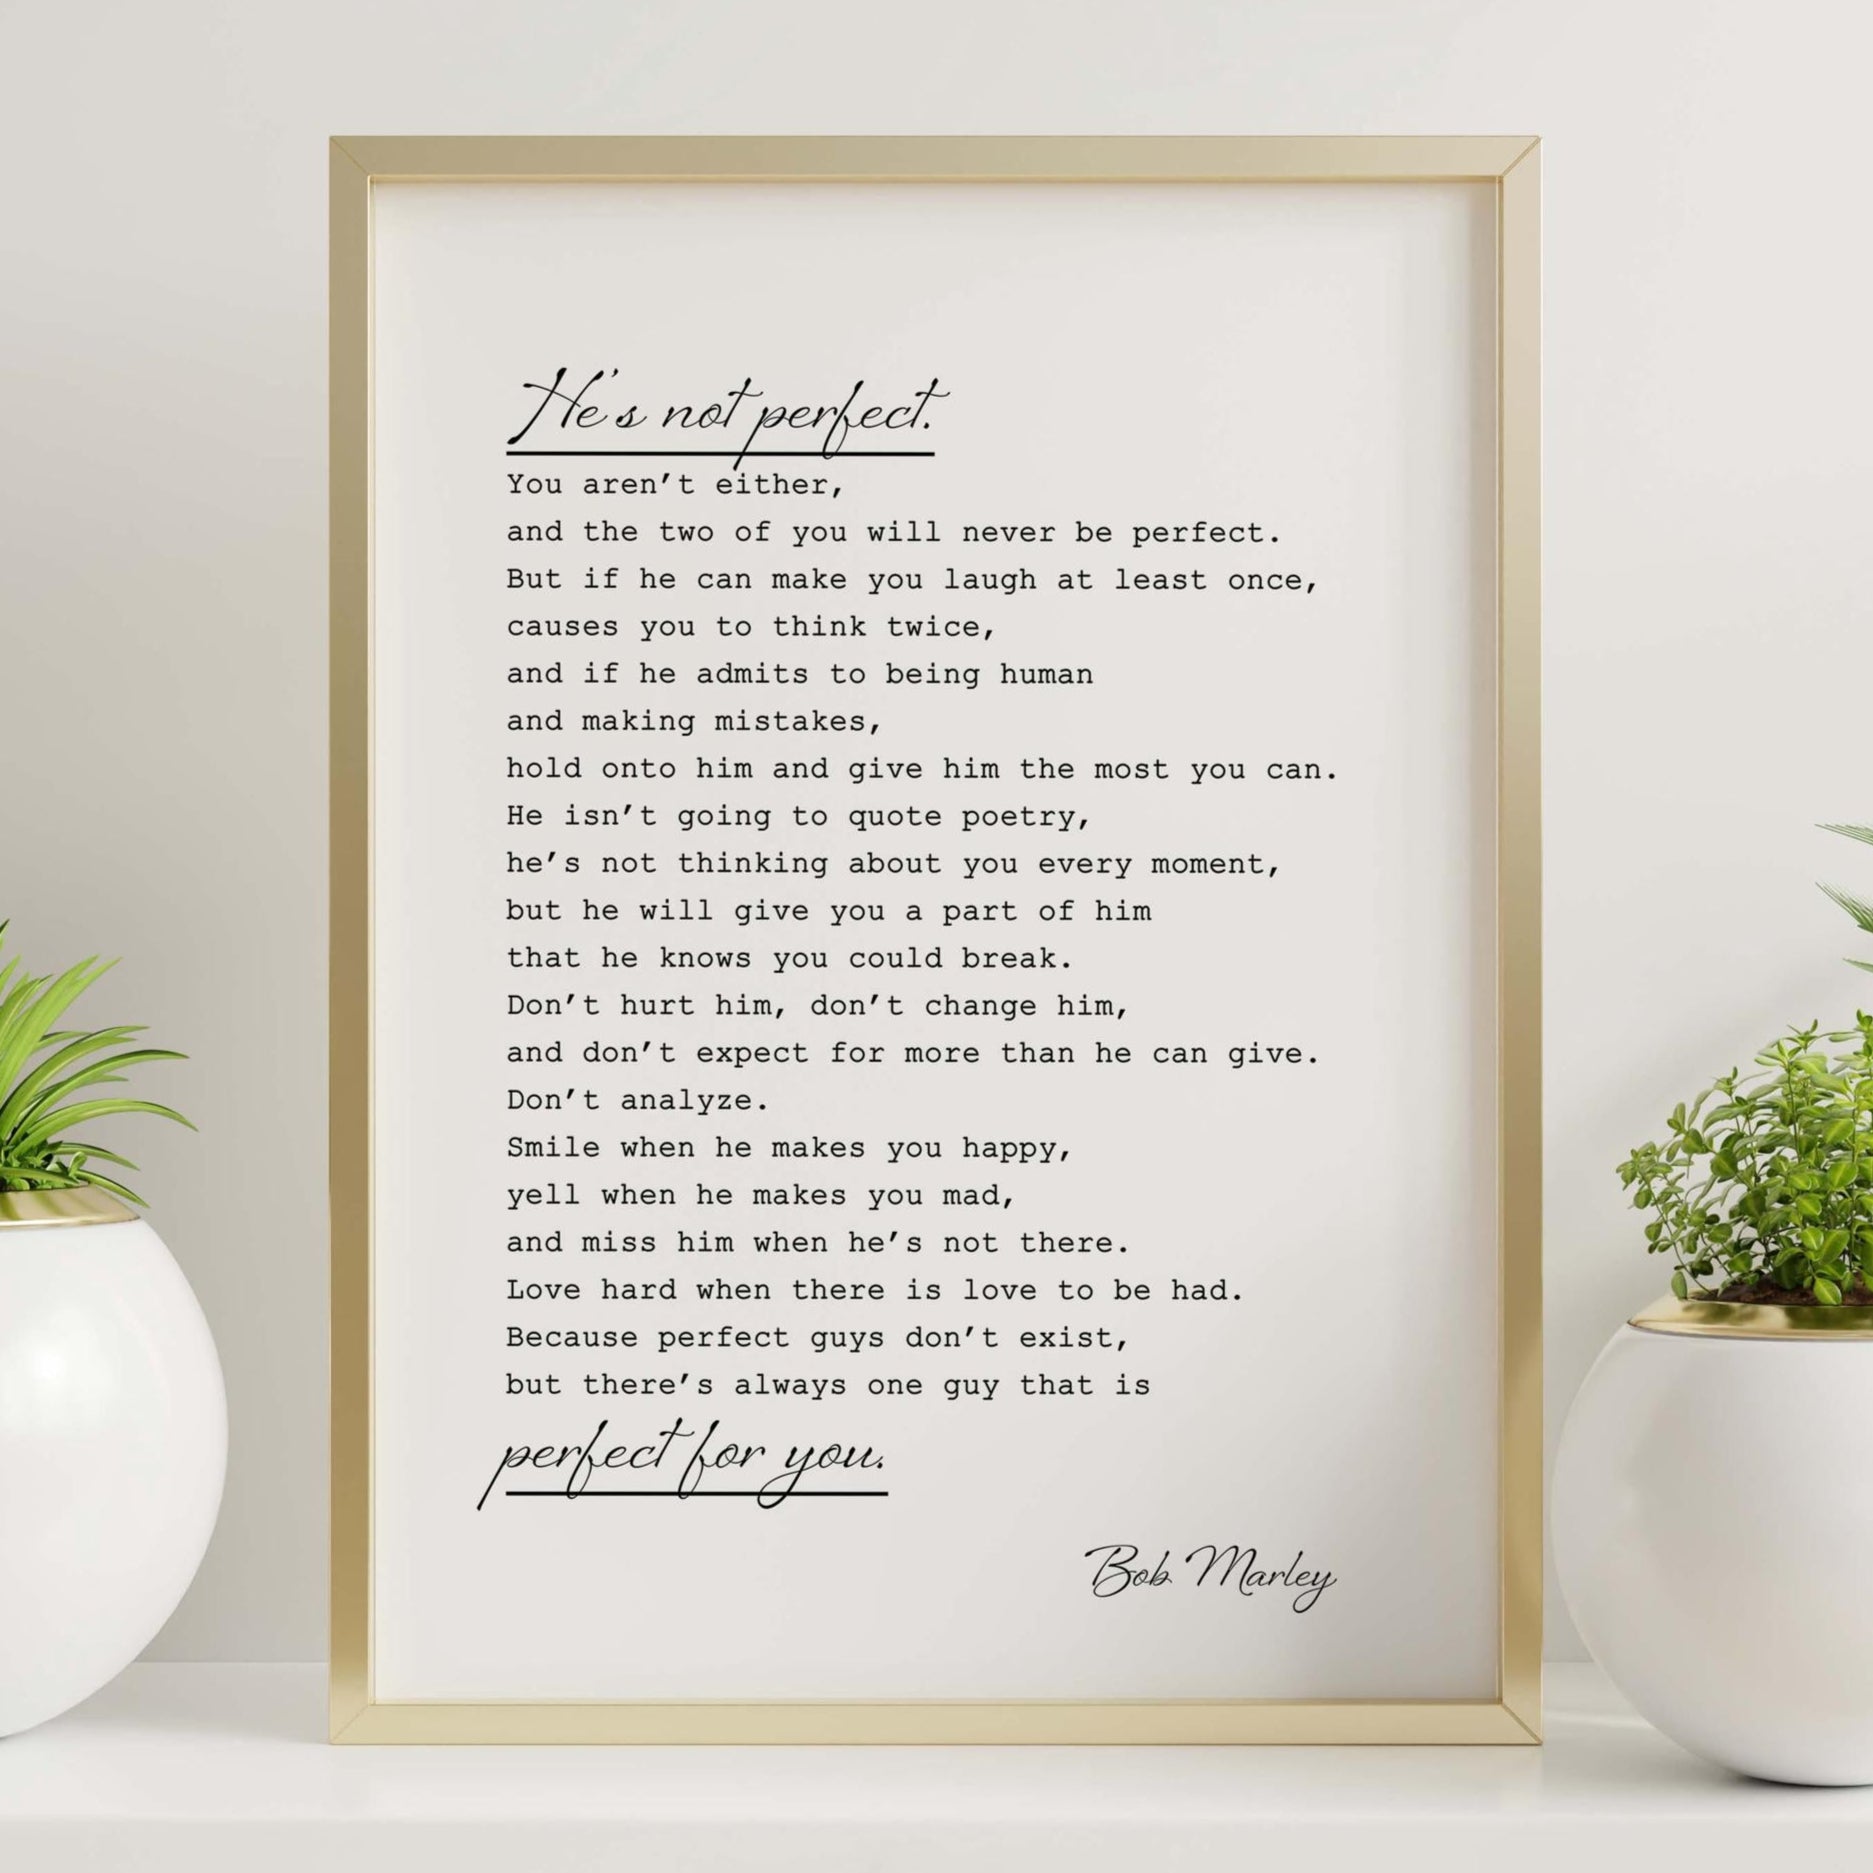 He's not perfect.
You aren't either,
and the two of you will never be perfect.
But if he can make you laugh at least once,
causes you to think twice,
and if he admits to being human
and making mistakes,
hold onto him and give him the most you can.
He isn't going to quote poetry,
he's not thinking about you every moment,
but he will give you a part of him
that he knows you could break.
Don't hurt him, don't change him,
and don't expect for more than he can give.
Don't analyze.
Smile when he makes you happy,
yell when he makes you mad,
and miss him when he's not there.
Love hard when there is love to be had.
Because perfect guys don't exist,
but there's always one guy that is
perfect for you.
Bob Marley